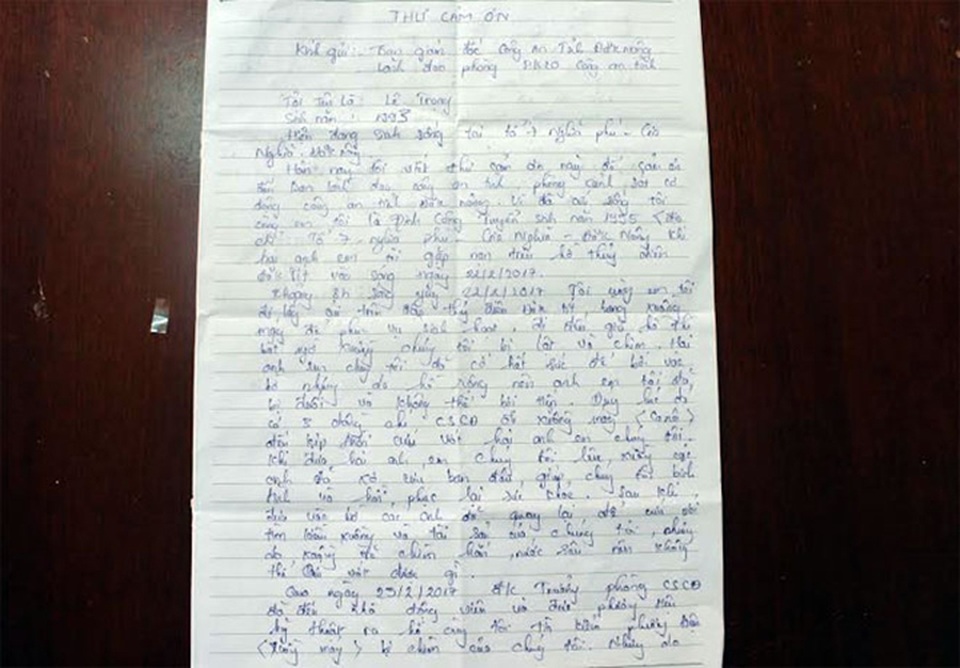 THƯ CẢM ƠN
Kính gửi: Ban giám đốc Công an Tỉnh Đăk nông
Lãnh đạo phòng PK20 Công an tỉnh
Tôi Tên Là: Lê Trọng
Sinh năm: 1993
Hiện đang sinh sống tại tổ 7 Nghĩa phú - Gia
Nghĩa. Đăk nông
Hôm nay tôi viết thư cảm ơn này để cảm ơn
đến Ban lãnh đạo công an tỉnh, phòng cảnh sát cơ
động công an tỉnh Đăk nông. Vì đã cứu sống tôi
cùng em tôi là Đinh Công Tuyển sinh năm 1995 (địa
chỉ Tổ 7 - nghĩa phú - Gia Nghĩa - Đăk Nông) khi
hai anh em tôi gặp nạn trên hồ thủy điện
Đăk Tít vào sáng ngày 22/2/2017.
Khoảng 8h sáng ngày 22/2/2017 Tôi cùng em tôi
đi lấy củi trên đập thủy điện Đăk Tít bằng xuồng
máy để phục vụ sinh hoạt. đi đến giữa hồ thì
bất ngờ xuồng chúng tôi bị lật và chìm. Hai
anh em chúng tôi đã cố hết sức để bơi vào
bờ nhưng do hồ rộng nên anh em tôi đã
bị đuối và không thể bơi tiếp. Đúng lúc đó
có 3 đồng chí CSCĐ đi xuồng máy (Canô)
đến kịp thời cứu vớt hai anh em chúng tôi.
Khi đưa hai anh em chúng tôi lên xuồng các
anh đã sơ cứu ban đầu, giúp chúng tôi bình
tĩnh và hồi phục lại sức khỏe. Sau khi
đưa vào bờ các anh đã quay lại để cứu
tìm kiếm xuồng và tài sản của chúng tôi, nhưng
do xuồng đã chìm hẳn, nước sâu nên không
thể cứu vớt được gì.
Qua ngày 23/2/2017 đ/c Trưởng phòng CSCĐ
đã đến nhà động viên và đưa phương tiện
kỹ thuật ra hồ cùng tôi tìm kiếm phương tiện
(Xuồng máy) bị chìm của chúng tôi. Nhưng do